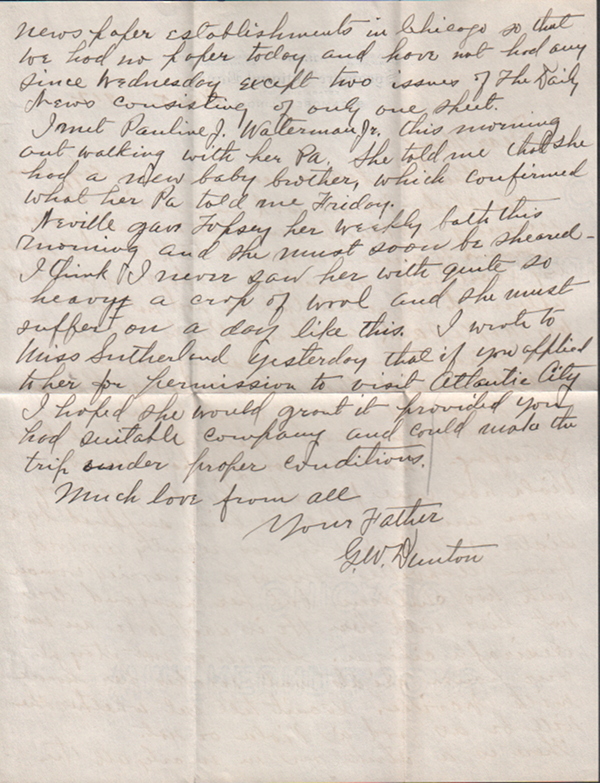 newspaper establishments in Chicago so that
we had no paper today and have not had any
since Wednesday except two issues of The Daily
News consisting of only one sheet.
I met Pauline J. Waterman Jr. this morning
out walking with her Pa. She told me that she
had a new baby brother, which confirmed
what her Pa told me Friday.
Neville gave Topsey her weekly bath this
morning and she must soon be sheared-
I think I never saw her with quite so
heavy a crop of wool and she must
suffer on a day like this. I wrote to
Miss Sutherland yesterday that if you applied
to her for permission to visit Atlantic City
I hoped she would grant it provided you
had suitable company and could make the
trip under proper conditions.
Much love from all
Your Father
G.W. Dunton